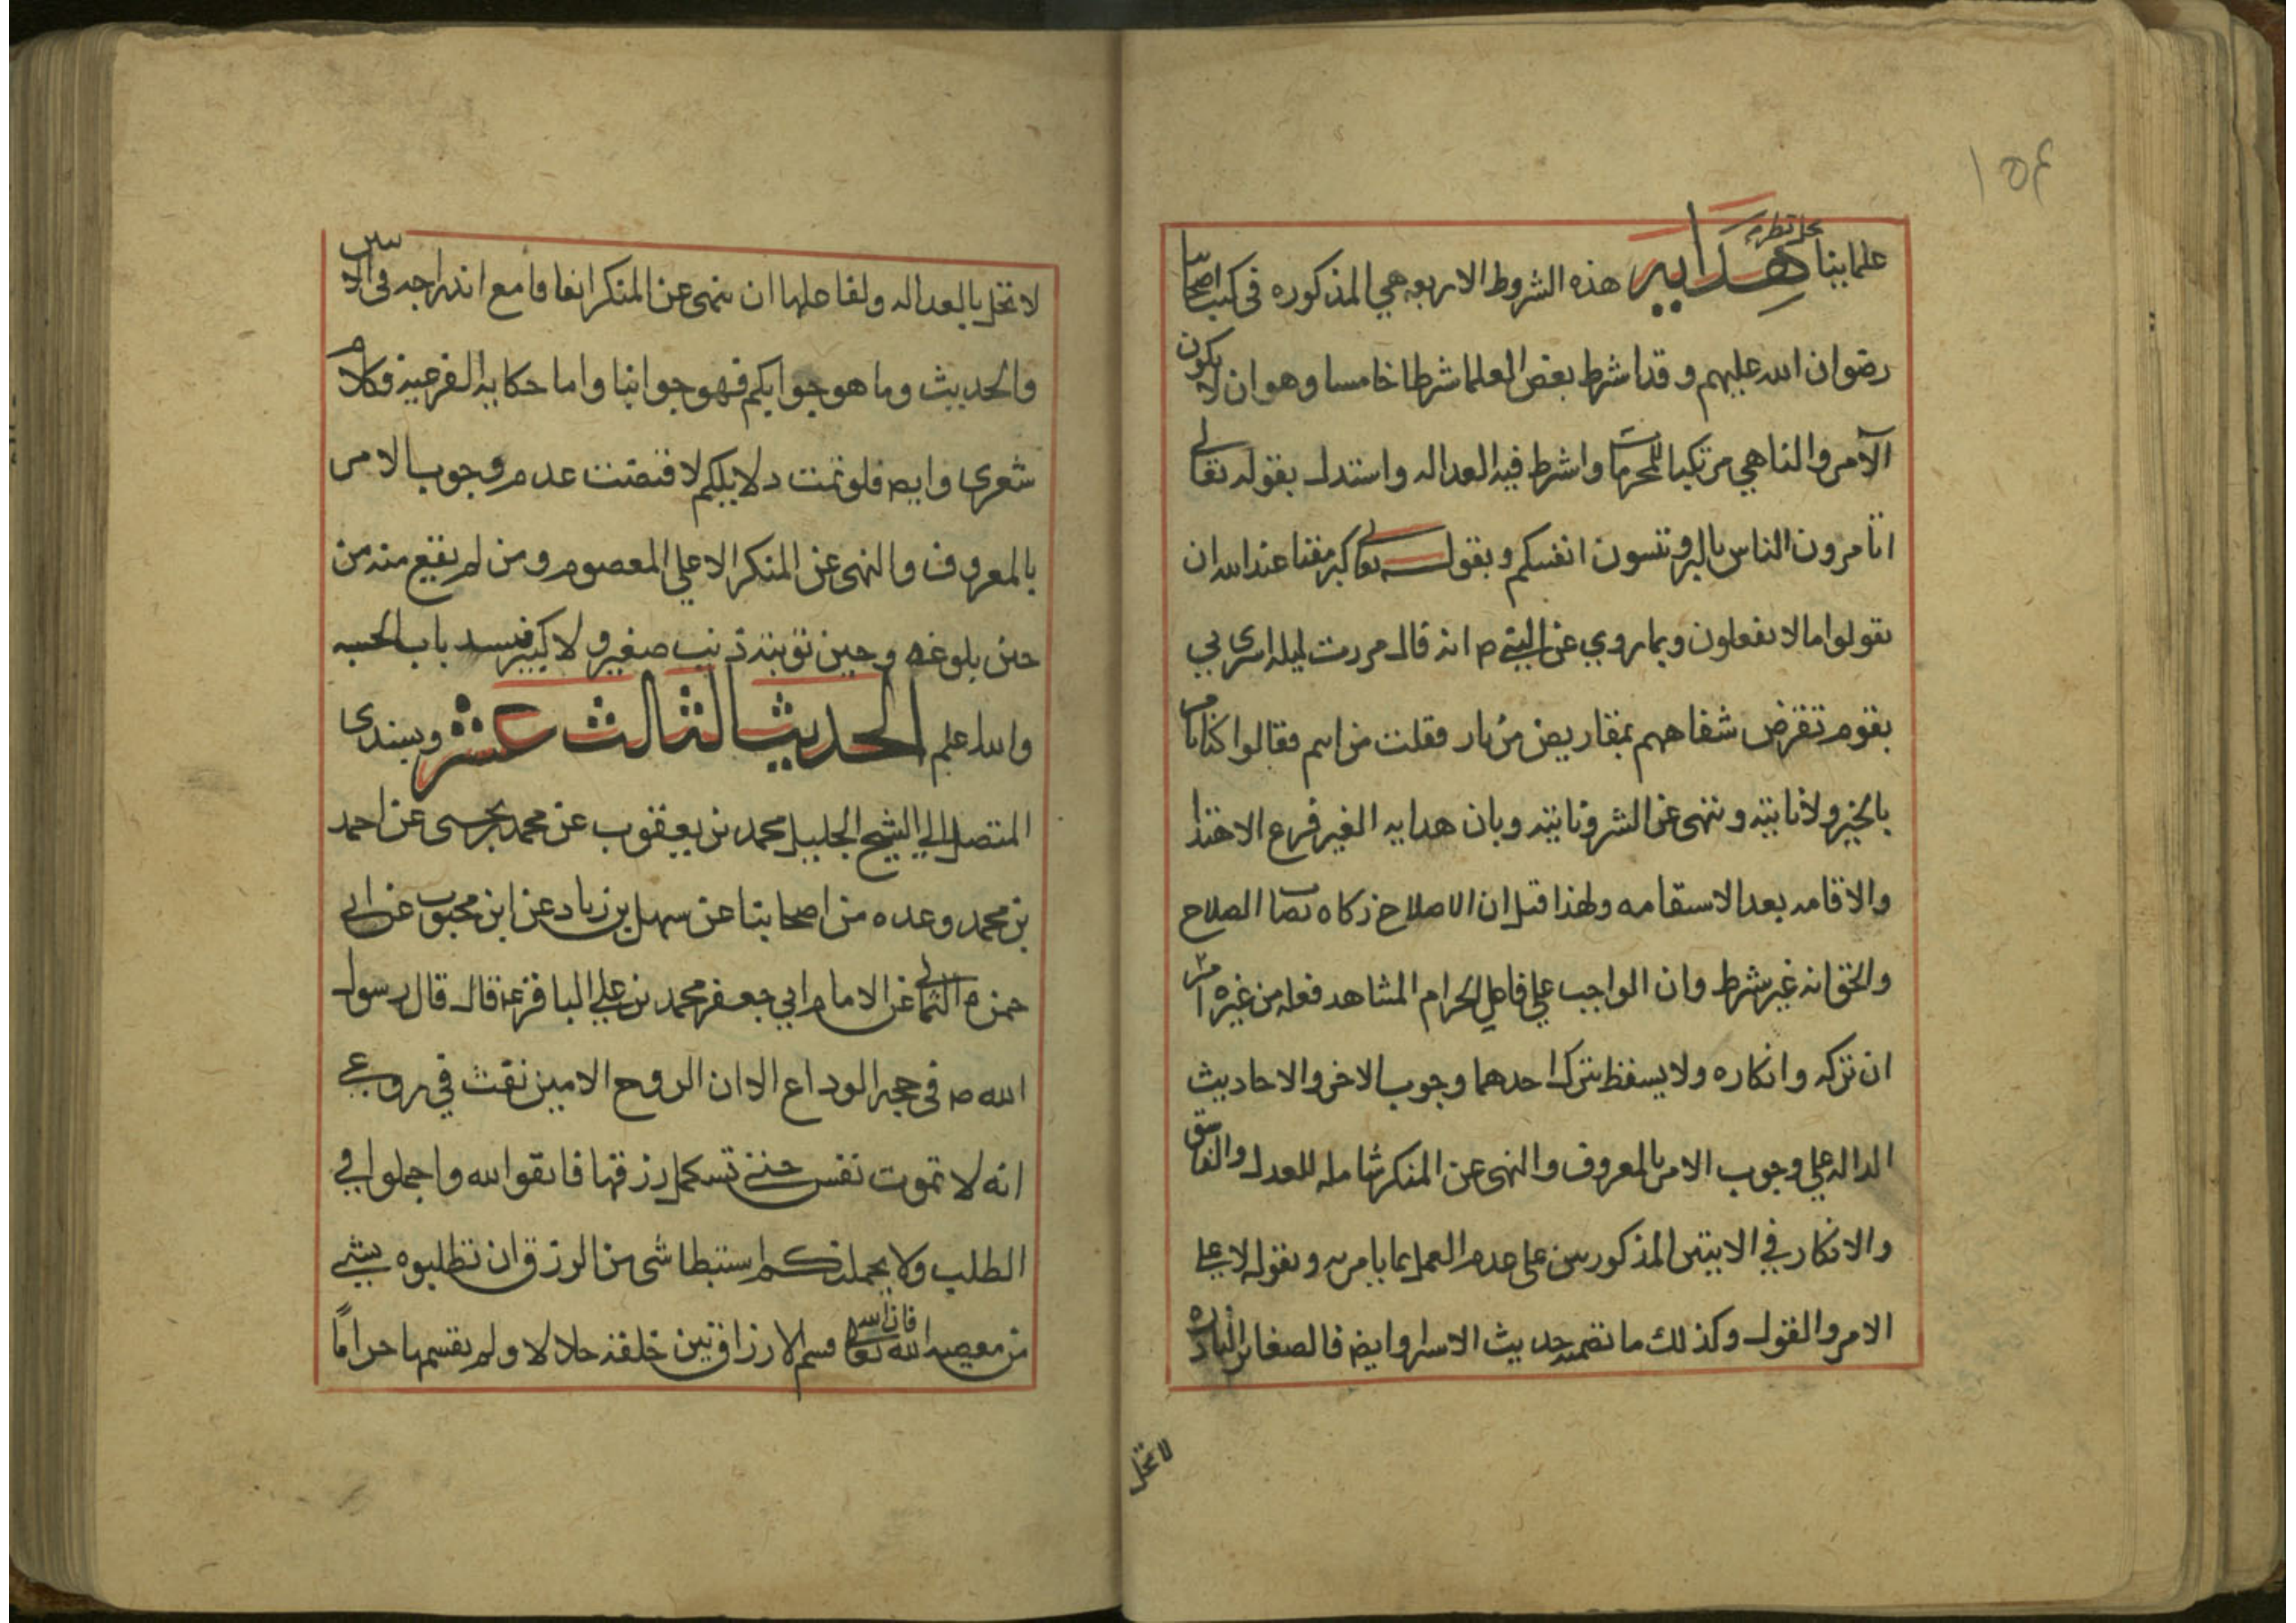 ١٥٤
علمابنا محل نظر هدايه هذه الشروط الاربعه هي المذكوره في كتب اصحابنا
رضوان الله عليهم وقد اشرط بعض العلما شرطا خامسا وهو ان لا يكون
الآمر والناهي مرتكبا للمحرمات واشرط فيه العداله واستدل بقوله تعالى
اتامرون الناس بالبر وتنسون انفسكم وبقوله تعالى كبر مقتا عند الله ان
تقولوا مالا تفعلون وبما روي عن النبي ص انه قال مررت ليله اسرى بي
بقوم تقرض شفاههم بمقاريض من نار فقلت من انتم فقالوا كنا نامر
بالخير ولا ناتيه وننهى عن الشر وناتيه وبان هدايه الغير فرع الاهتدا
والاقامه بعد الاستقامه ولهذا قيل ان الاصلاح زكاه نصاب الصلاح
والحق انه غير شرط وان الواجب على فاعل الحرام المشاهد فعله من غيره امران
تركه وانكاره ولا يسقط بترك احدهما وجوب الاخر والاحاديث
الداله على وجوب الامر بالمعروف والنهى عن المنكر شامله للعدل والفاسق
والانكار في الايتين المذكورتين على عدم العمل بما يامر به ويقوله لا على
الامر والقول وكذلك ما تضمنه حديث الاسرا وايضا فالصغاير النادره
لا تخل
لا تخل بالعداله ولفاعلها ان ينهى عن المنكر اتفاقا مع اندراجه في الايتين
والحديث وما هو جوابكم فهو جوابنا واما حكايه الفرعيه فكلام
شعري وايضا فلو تمت دلايلكم لاقتضت عدم وجوب الامر
بالمعروف والنهى عن المنكر الا على المعصوم ومن لم يقع منه من
حين بلوغه وحين توبته ذنب صغير ولا كبير فيسد باب الحسبه
والله اعلم الحديث الثالث عشر وبسندى
المتصل الى الشيخ الجليل محمد بن يعقوب عن محمد بن يحيى عن احمد
بن محمد وعده من اصحابنا عن سهل بن زياد عن ابن محبوب عن ابى
حمزه الثمالى عن الامام ابي جعفر محمد بن علي الباقر ع قال قال رسول
الله ص في حجه الوداع الا ان الروح الامين نفث في روعي
انه لا تموت نفس حتى تستكمل رزقها فاتقوا الله واجملوا في
الطلب ولا يحملنكم استبطا شى من الرزق ان تطلبوه بشي
من معصيه الله فان الله تعالى قسم الارزاق بين خلقه حلالا ولم يقسمها حراماً